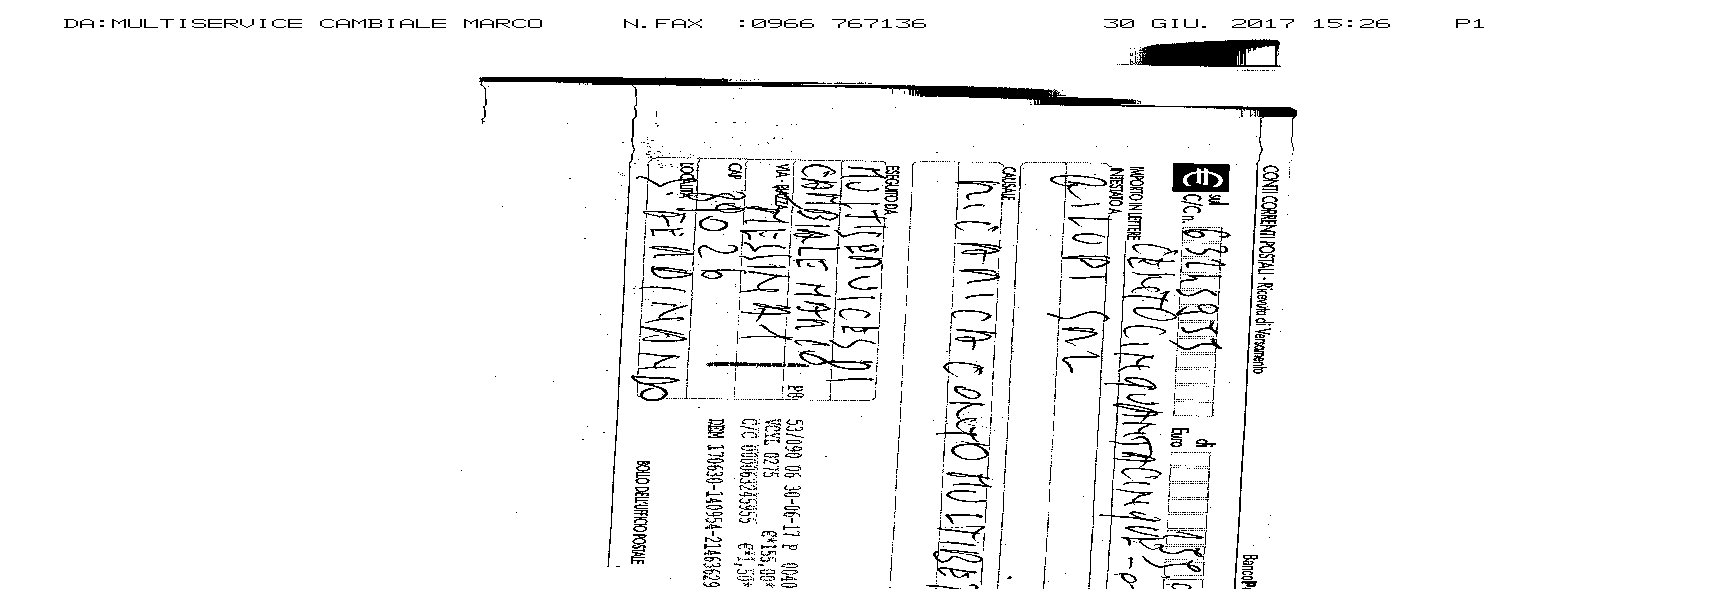 DA:MULTISERVICE CAMBIALE MARCO N.FAX :0966 767136 30 GIU. 2017 15:26 P1
CONTI CORRENTI POSTALI - Ricevuta di Versamento
€ sul C/C n. di Euro
IMPORTO IN LETTERE CENTOCINQUANTACINQUE
INTESTATO A
GILUPI SRL
CAUSALE
RICARICA CONTO MULTISE
ESEGUITO DA
MULTISERVICES DI
CAMBIALE MARCO
VIA - PIAZZA MESSINA
CAP 89026
LOCALITÀ S. FERDINANDO
53/090 06 30-06-17 P 0040
VCYL 0275 €*155,00*
€*1,50*
DEM 170630-140954-21463629
BOLLO DELL'UFFICIO POSTALE